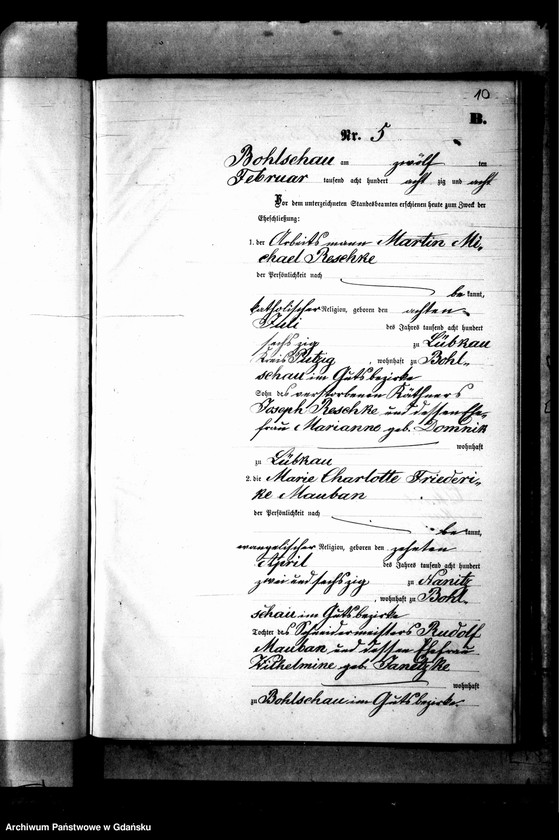 10
B.
Nr. 5
Bohlschau am zwölf ten
Februar tausend acht hundert acht zig und acht
Vor dem unterzeichneten Standesbeamten erschienen heute zum Zweck der
Eheschließung:
1. der Arbeitsmann Martin Mi-
chael Reschke
der Persönlichkeit nach
be kannt,
katholischer Religion, geboren den achten
Juli des Jahres tausend acht hundert
sechszig zu Lübkau
Kreis Putzig, wohnhaft zu Bohl-
schau im Gutsbezirke
Sohn des verstorbenen Käthners
Joseph Reschke und dessen Ehe-
frau Marianne geb. Domnik
wohnhaft
zu Lübkau
2. die Marie Charlotte Friederi-
ke Mauban
der Persönlichkeit nach
be kannt,
evangelischer Religion, geboren den zehnten
April des Jahres tausend acht hundert
zwei und sechszig zu Nanitz
, wohnhaft zu Bohl-
schau im Gutsbezirke
Tochter des Schneidermeisters Rudolf
Mauban und dessen Ehefrau
Wilhelmine geb. Janetzke
wohnhaft
zu Bohlschau im Gutsbezirke.
Archiwum Państwowe w Gdańsku